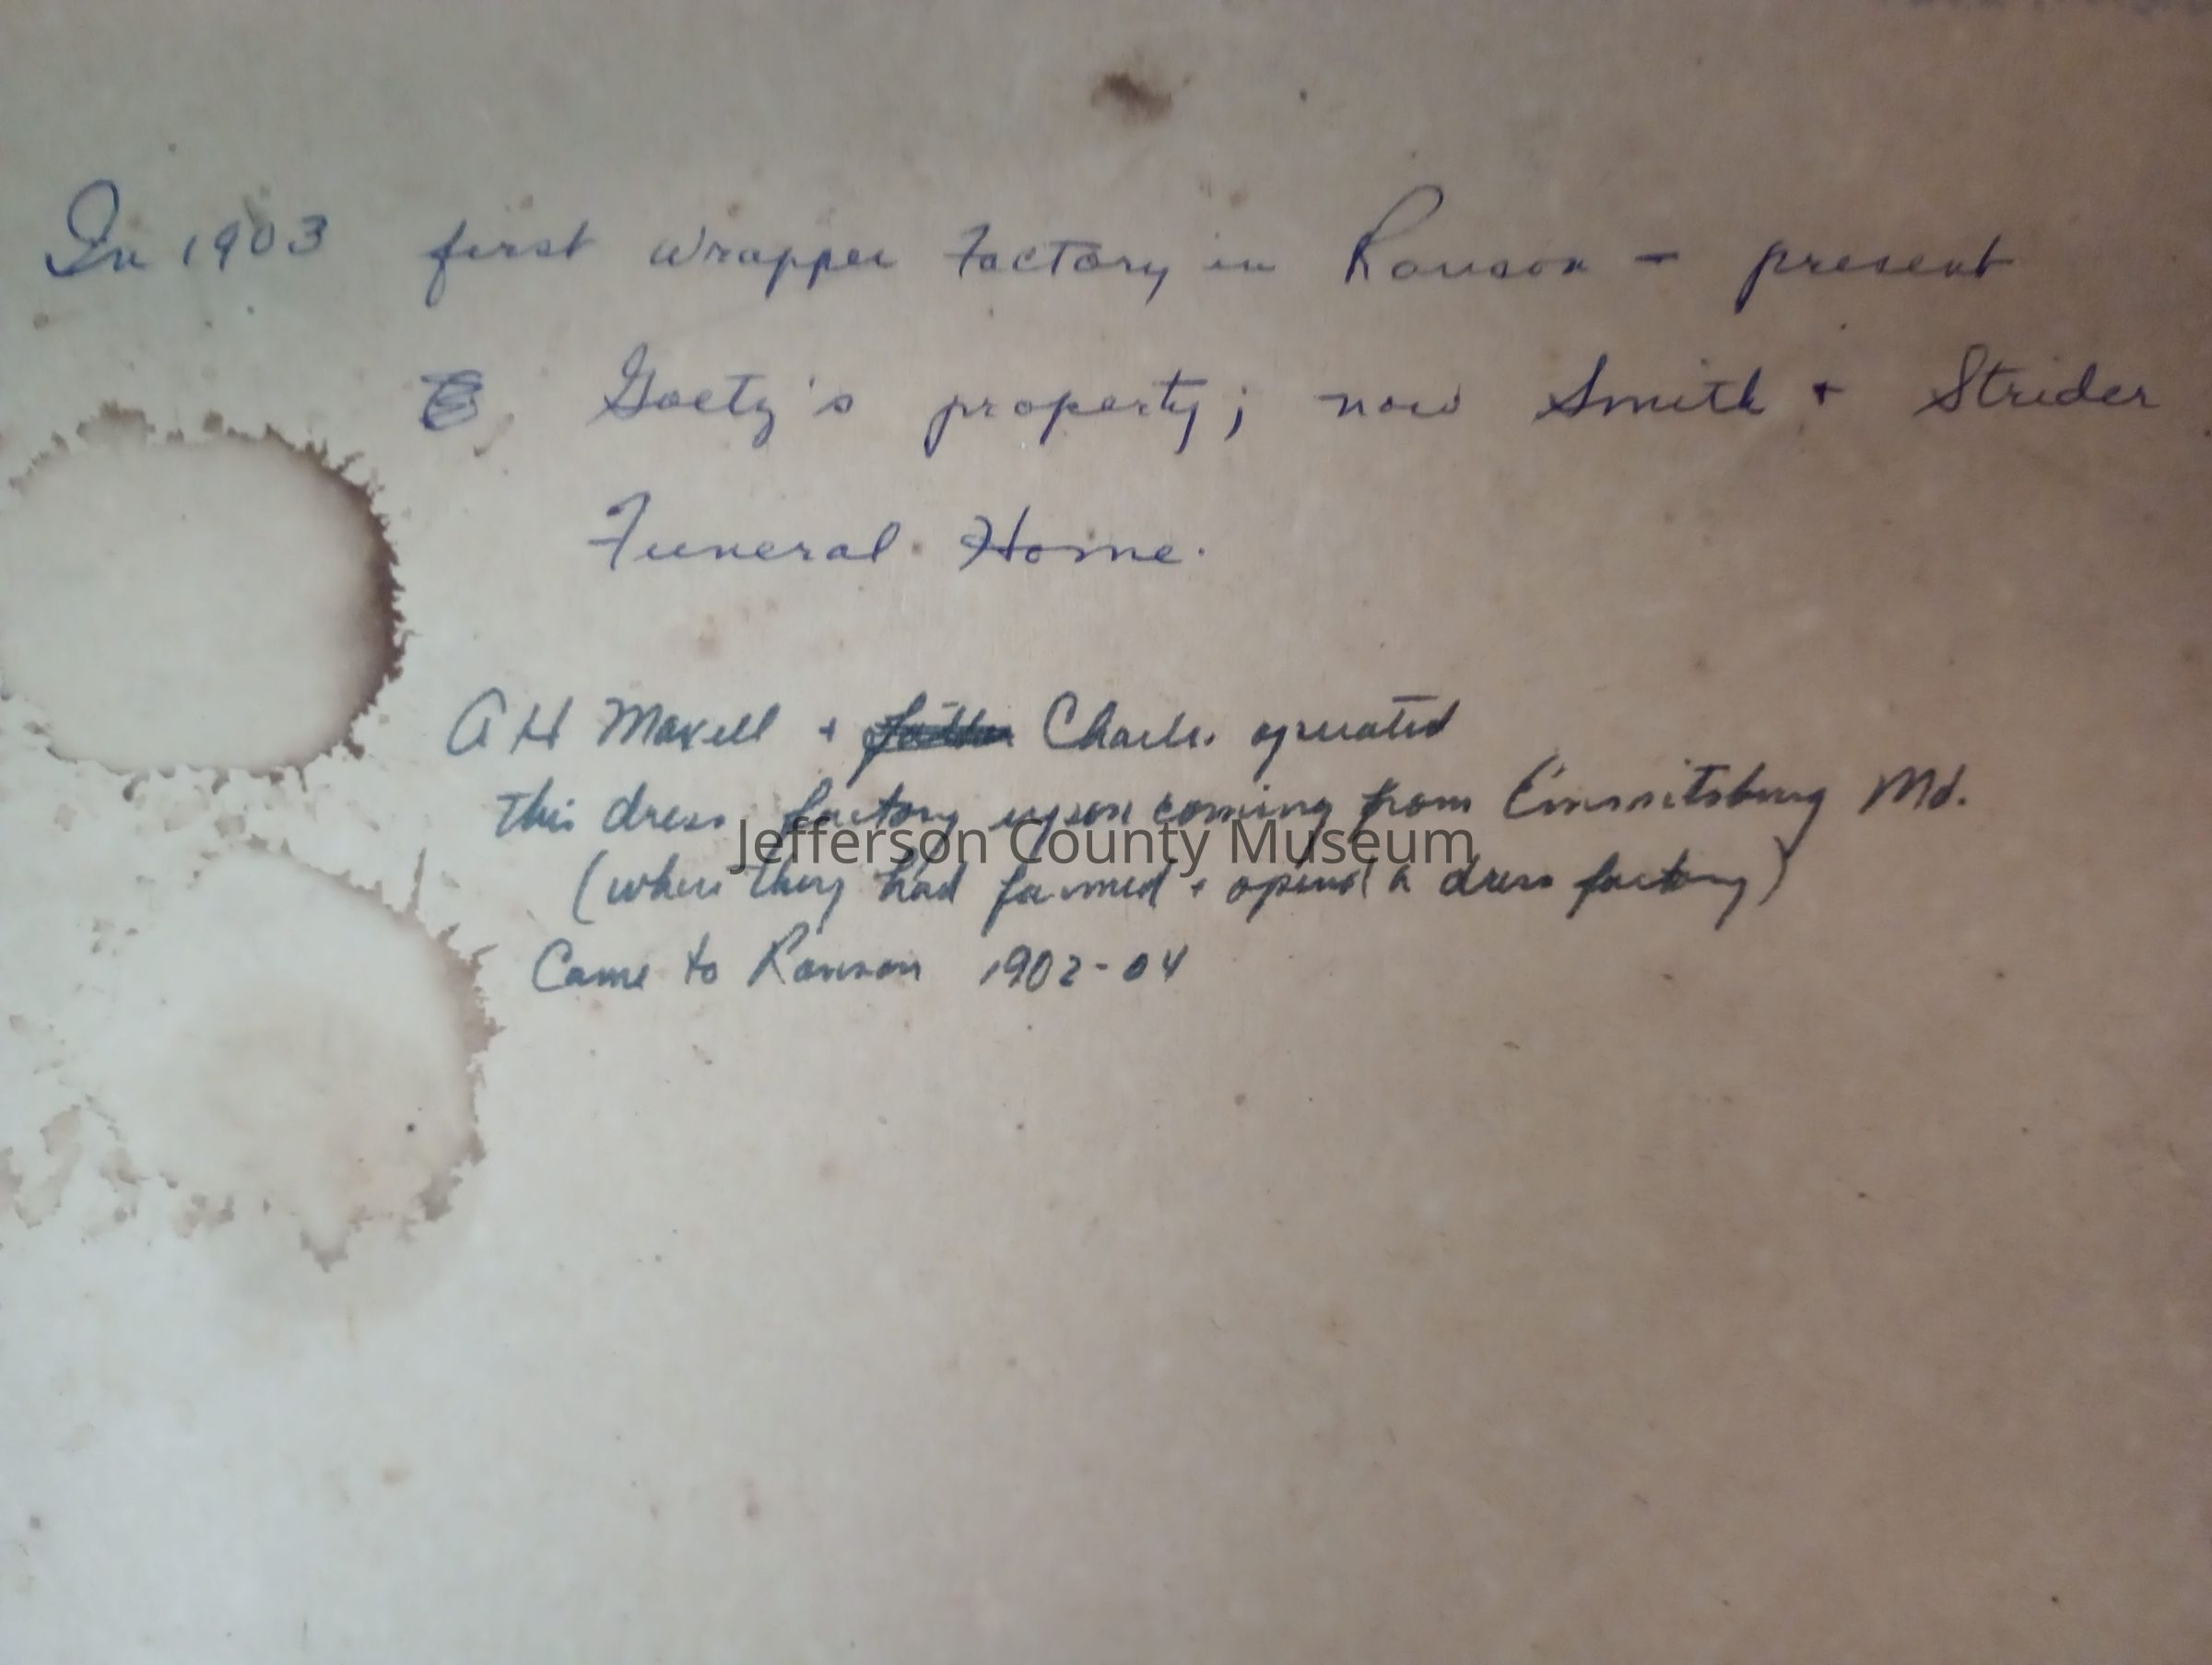 In 1903 first wrapper Factory in Ranson - present
Goetz's property; now Smith + Strider
Funeral Home.
A H Maxell + father Charles operated
this dress factory upon coming from Emmitsburg Md.
Jefferson County Museum
(where they had farmed + opened a dress factory)
Came to Ranson 1902-04